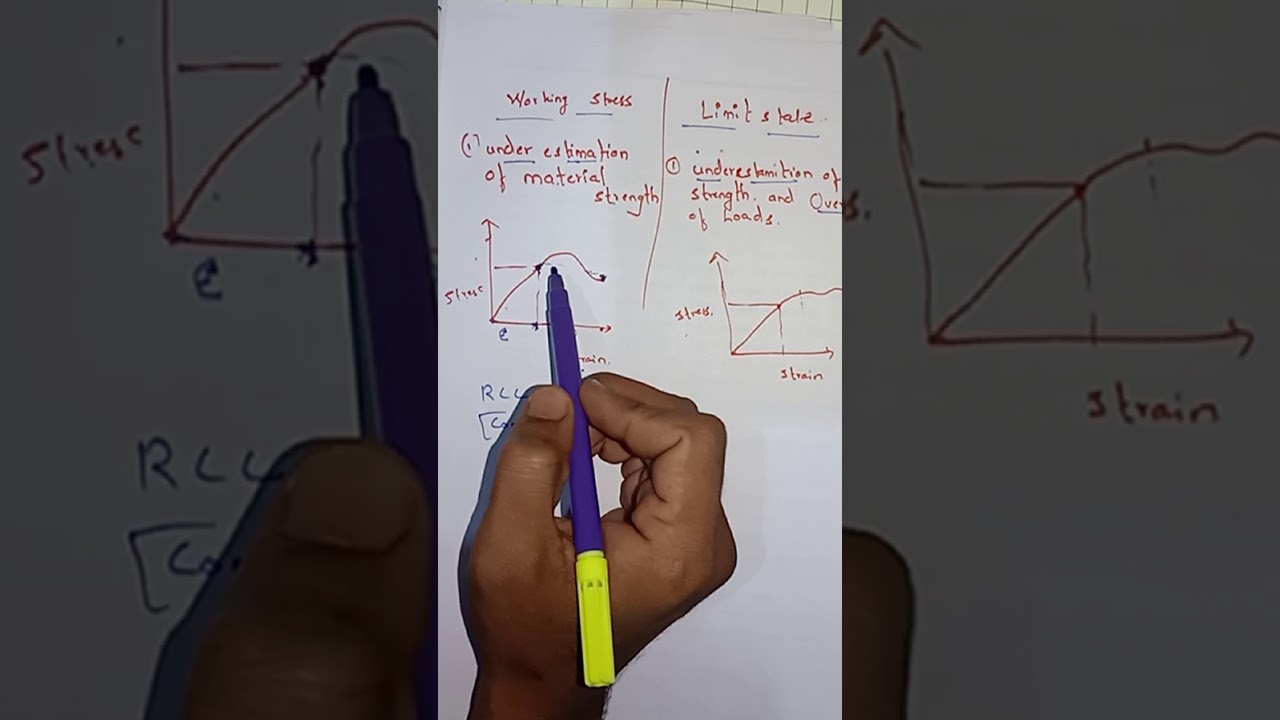 Working stress
(1) under estimation
of material
strength
Stress
ε
RCC
Limit state
① underestamition of
strength and Overs
of Loads.
stress.
strain